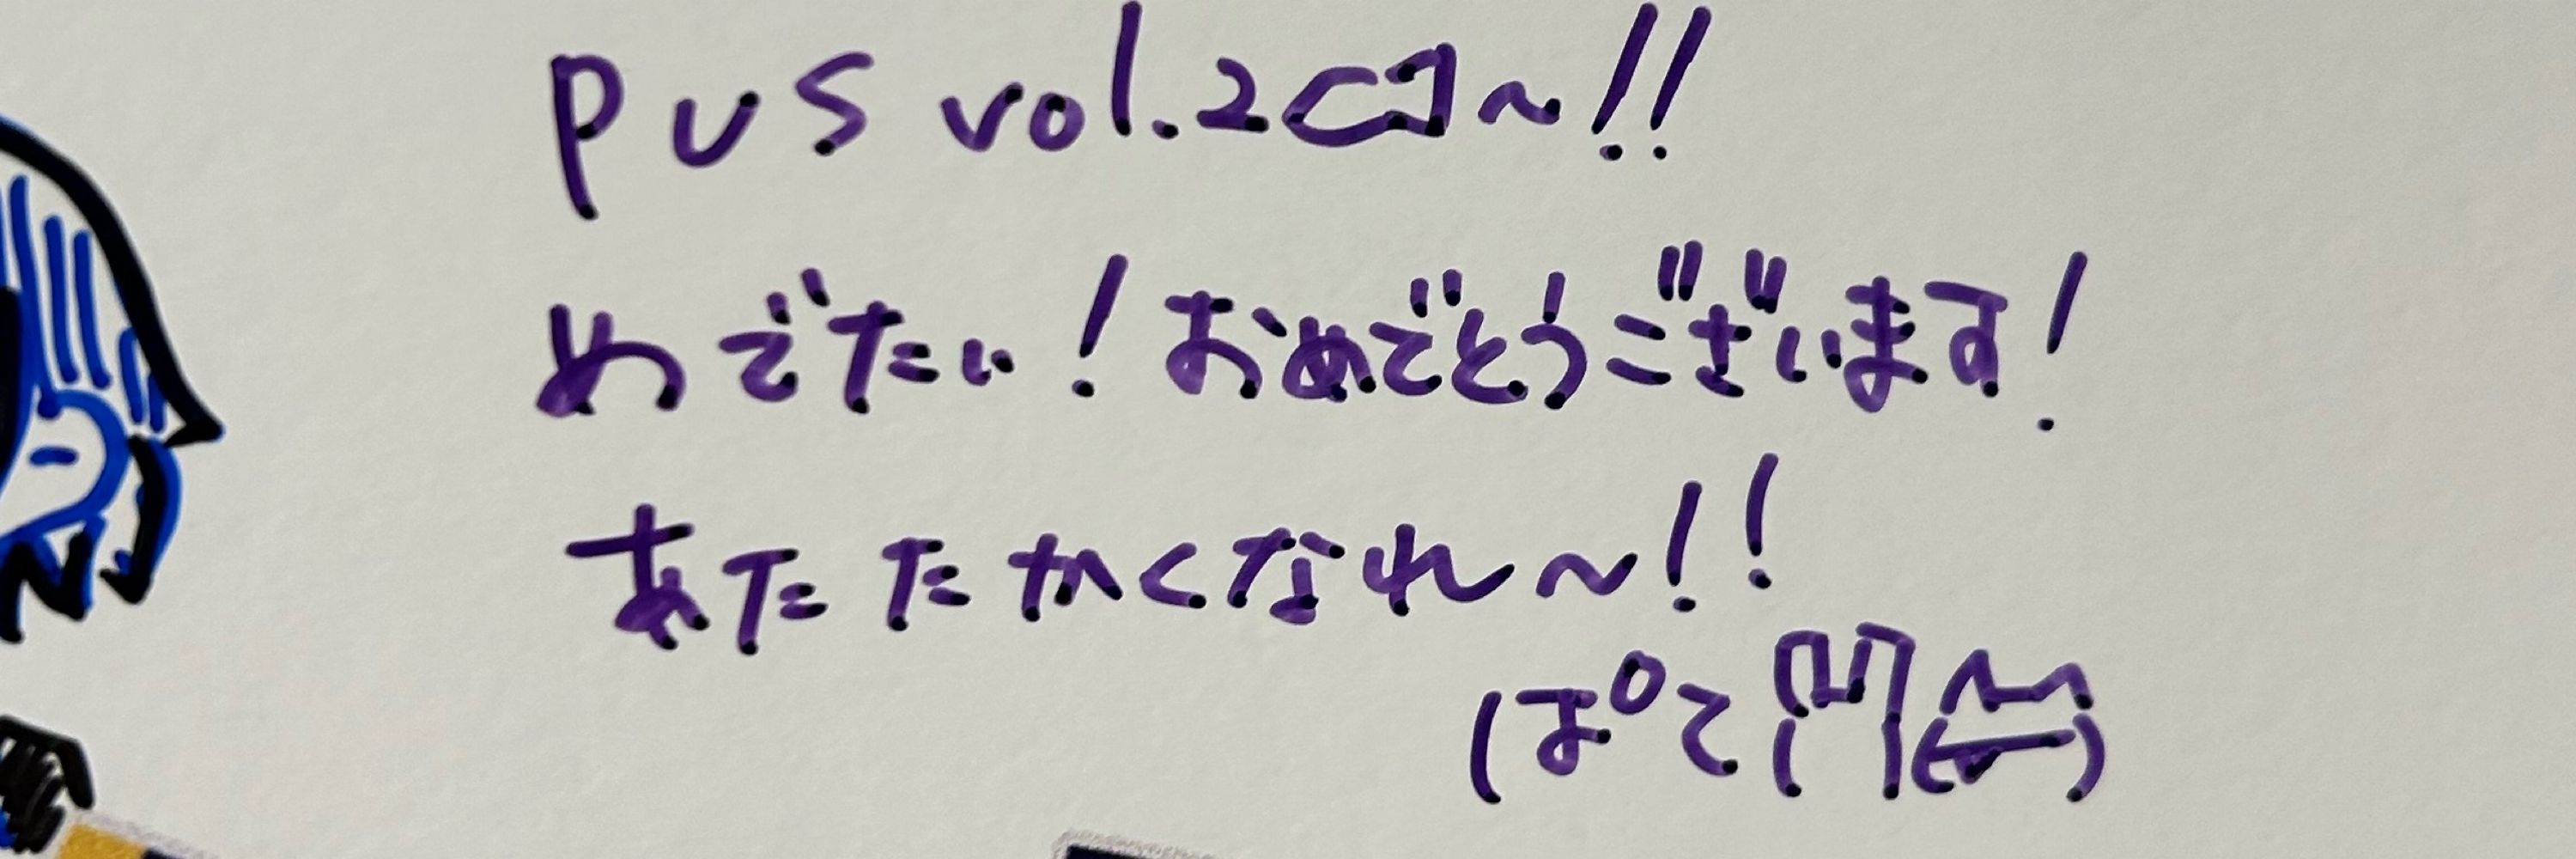 pus vol.2 〜!!
めでたい!おめでとうございます!
あたたかくなれ〜!!
ぽて